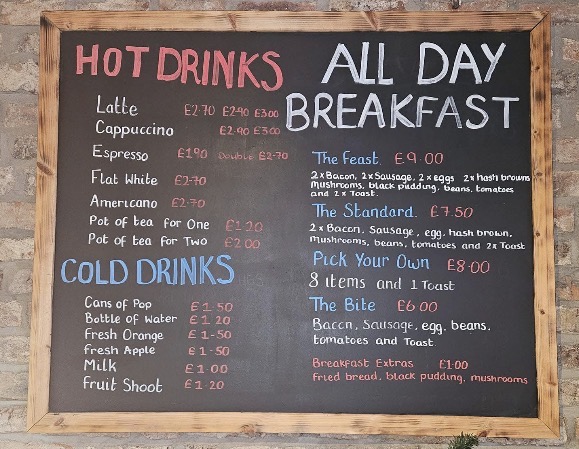 HOT DRINKS
Latte £2·70 £2·90 £3·00
Cappuccino £2·90 £3·00
Espresso £1·90 Double £2·70
Flat White £2·70
Americano £2·70
Pot of tea for One £1·20
Pot of tea for Two £2·00
COLD DRINKS
Cans of Pop £1·50
Bottle of Water £1·20
Fresh Orange £1·50
Fresh Apple £1·50
Milk £1·00
Fruit Shoot £1·20
ALL DAY
BREAKFAST
The Feast. £9·00
2x Bacon, 2x Sausage, 2x eggs 2x hash browns
mushrooms, black pudding, beans, tomatoes
and 2x Toast.
The Standard. £7·50
2x Bacon, Sausage, egg, hash brown,
mushrooms, beans, tomatoes and 2x Toast
Pick Your Own £8·00
8 items and 1 Toast
The Bite £6·00
Bacon, Sausage, egg, beans,
tomatoes and Toast.
Breakfast Extras £1·00
fried bread, black pudding, mushrooms